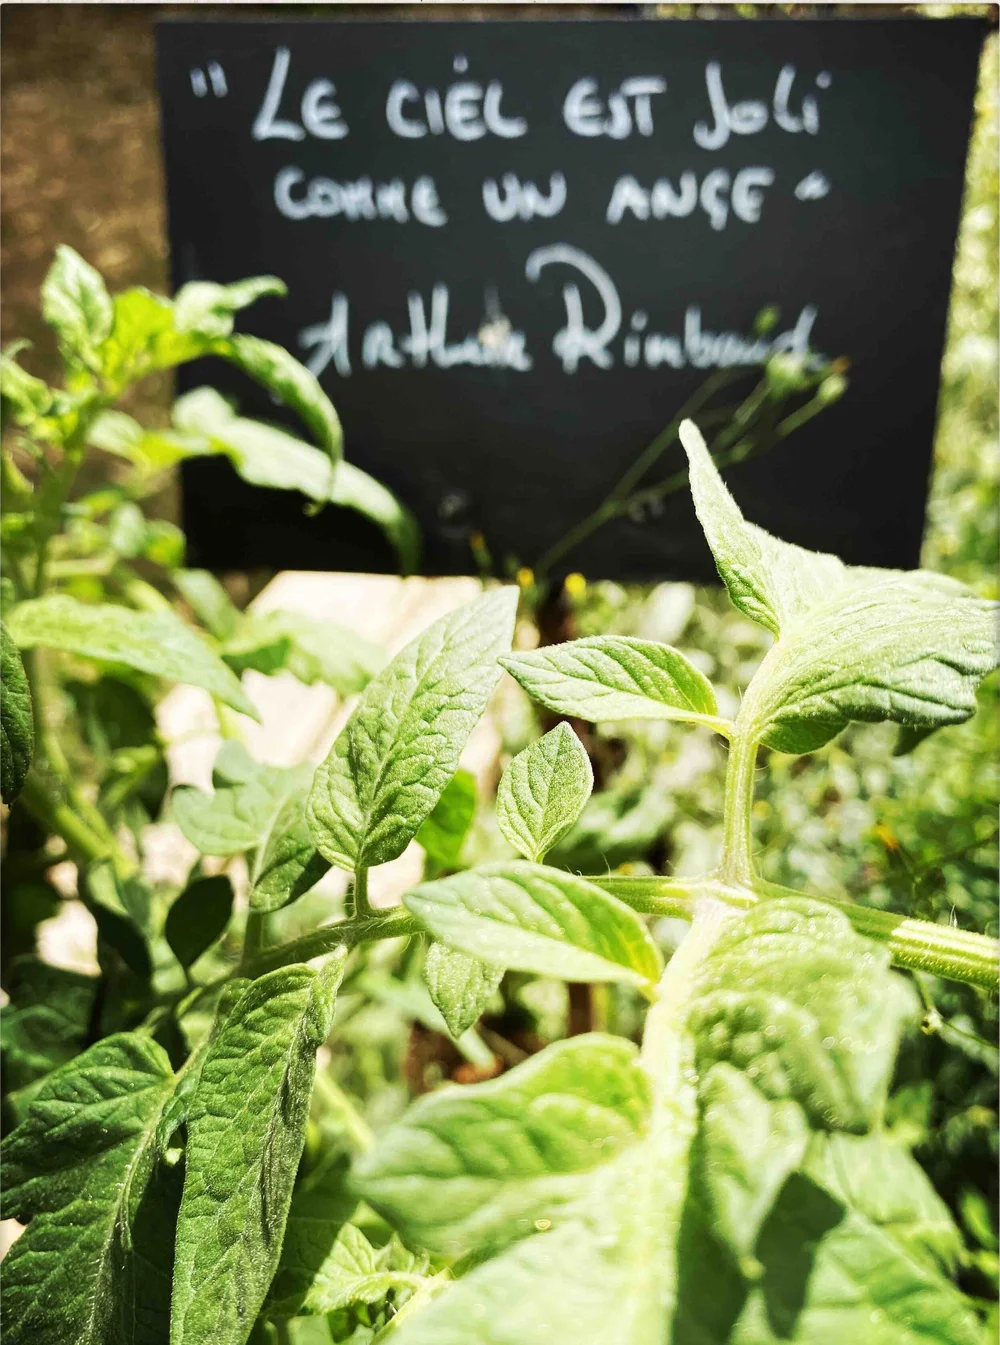 "LE CIEL EST Joli
COMME UN ANGE"
Arthur Rimbaud